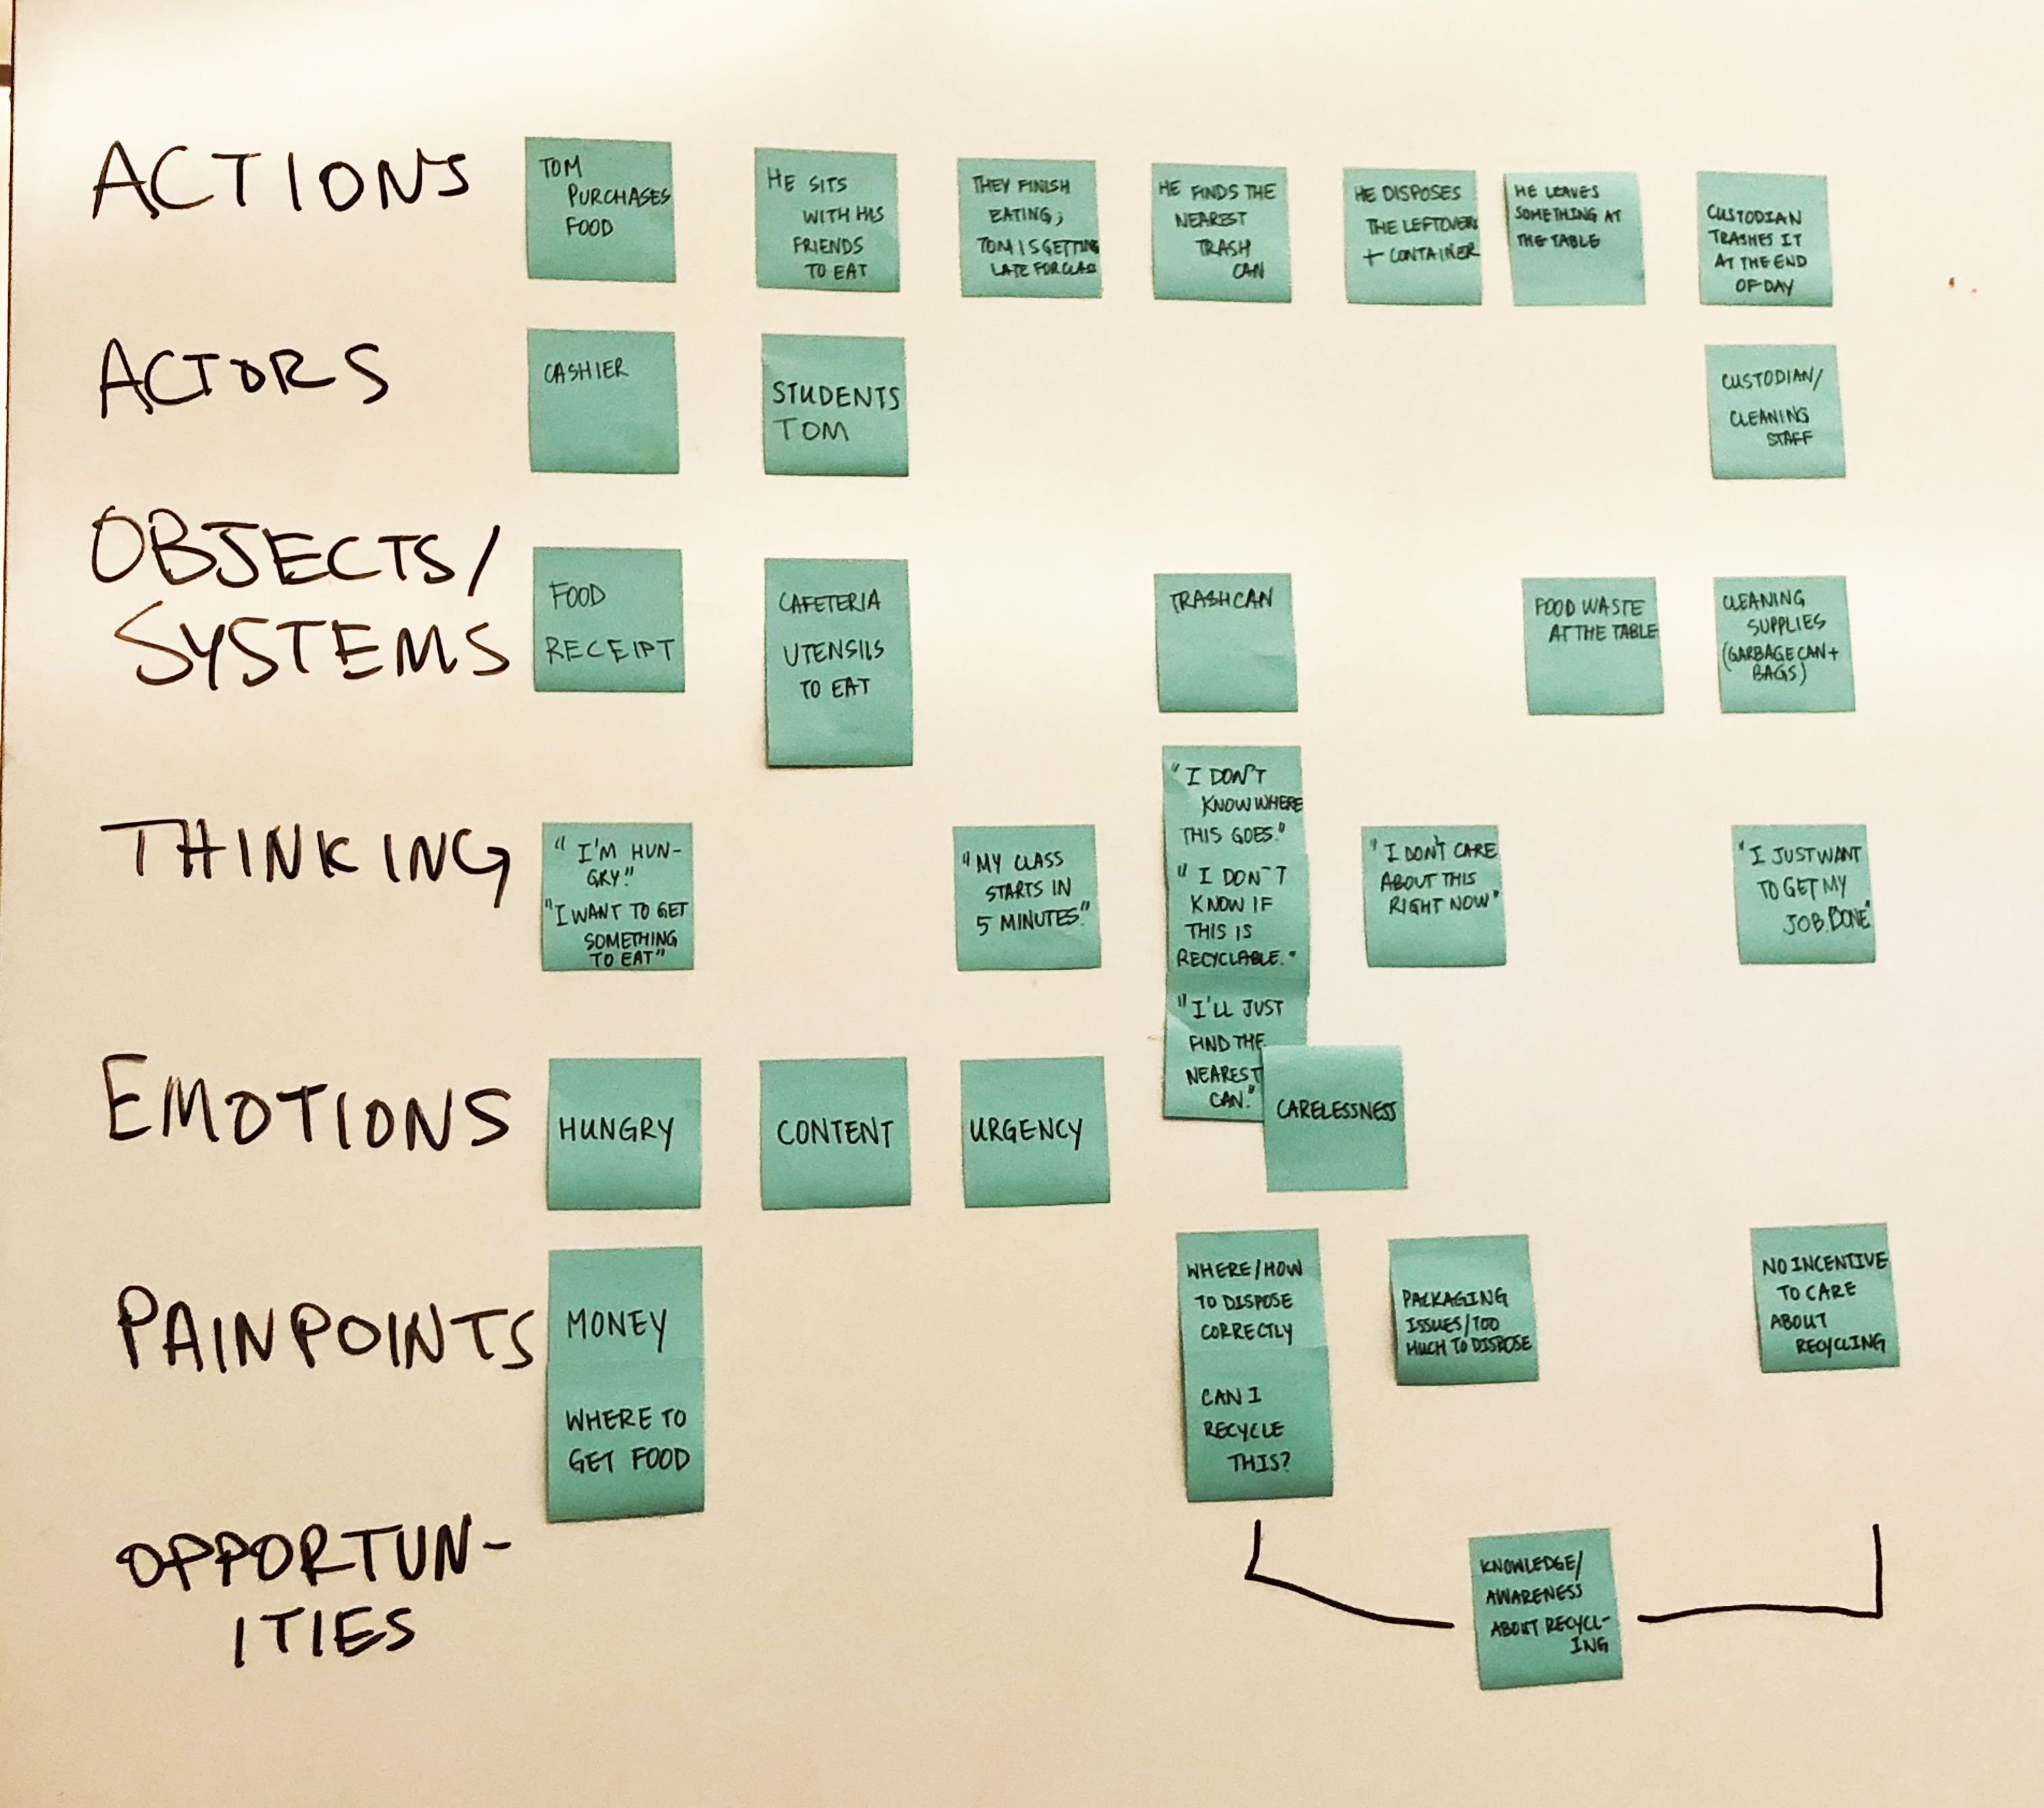 ACTIONS
TOM
PURCHASES
FOOD
HE SITS
WITH HIS
FRIENDS
TO EAT
THEY FINISH
EATING;
TOM IS GETTING
LATE FOR CLASS
HE FINDS THE
NEAREST
TRASH
CAN
HE DISPOSES
THE LEFTOVER
+ CONTAINER
HE LEAVES
SOMETHING AT
THE TABLE
CUSTODIAN
TRASHES IT
AT THE END
OF DAY
ACTORS
CASHIER
STUDENTS
TOM
CUSTODIAN/
CLEANING
STAFF
OBJECTS/
SYSTEMS
FOOD
RECEIPT
CAFETERIA
UTENSILS
TO EAT
TRASHCAN
FOOD WASTE
AT THE TABLE
CLEANING
SUPPLIES
(GARBAGE CAN +
BAGS)
THINKING
"I'M HUN-
GRY."
"I WANT TO GET
SOMETHING
TO EAT"
"MY CLASS
STARTS IN
5 MINUTES."
"I DON'T
KNOW WHERE
THIS GOES."
"I DON'T
KNOW IF
THIS IS
RECYCLABLE."
"I'LL JUST
FIND THE
NEAREST
CAN."
"I DON'T CARE
ABOUT THIS
RIGHT NOW"
"I JUST WANT
TO GET MY
JOB DONE"
EMOTIONS
HUNGRY
CONTENT
URGENCY
CARELESSNESS
PAINPOINTS
MONEY
WHERE TO
GET FOOD
WHERE/HOW
TO DISPOSE
CORRECTLY
CAN I
RECYCLE
THIS?
PACKAGING
ISSUES/TOO
MUCH TO DISPOSE
NO INCENTIVE
TO CARE
ABOUT
RECYCLING
OPPORTUN-
ITIES
KNOWLEDGE/
AWARENESS
ABOUT RECYCL-
ING